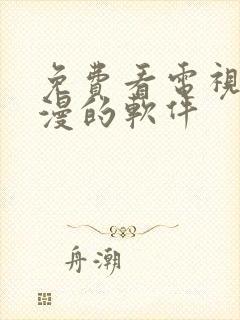 免費看電視
漫的軟件
舟潮